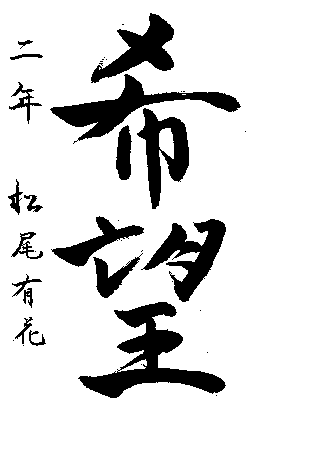 希望
二年 松尾有花